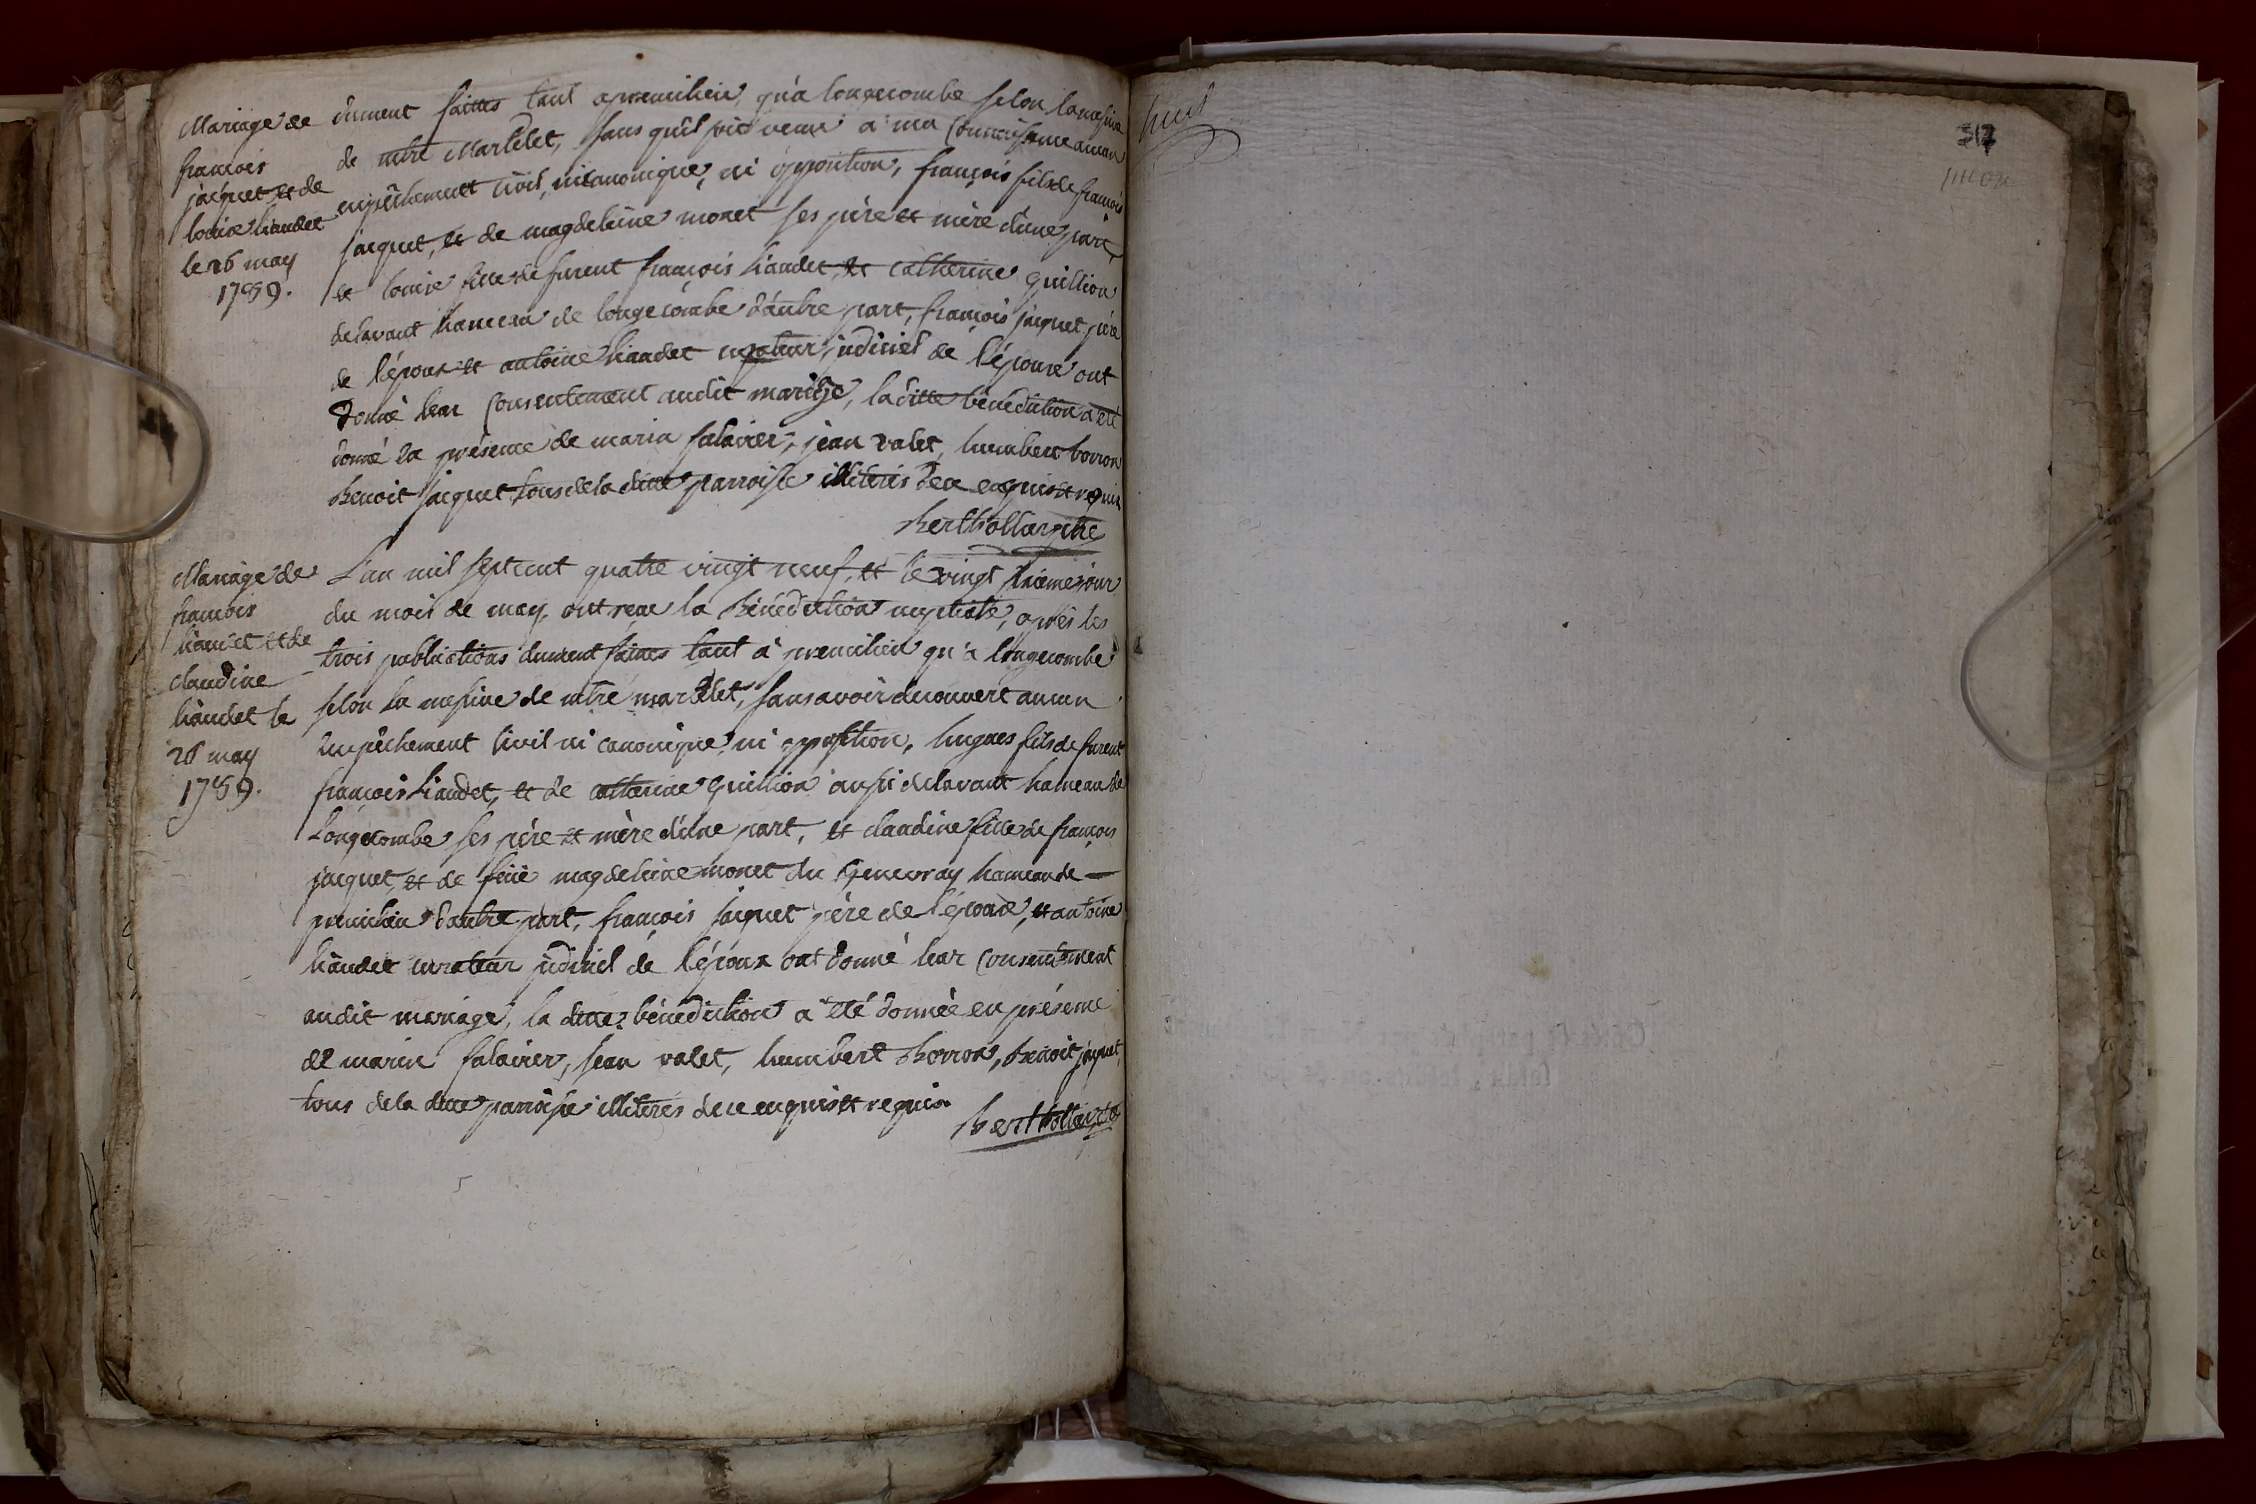 Mariage de
francois
jacquet et de
louise liaudet
le 26 may
1789.
dument faittes tant a premilieu, qu'a longecombe selon la missive
de mtre Martelet, sans qu'il soit venu a ma Connaissance aucun
empêchement civil, ni canonique, ni opposition, françois fils de françois
jacquet, et de magdeleine monet ses père et mère d'une part,
et louise fille de furent françois liaudet, et catherine quillion
delavant hameau de longecombe d'autre part, françois jacquet père
de l'époux et antoine liaudet curateur judiciel de l'épouse ont
donné leur Consentement audit mariage, la ditte bénédiction a été
donné en présence de marin salavier, jean valet, humbert borron
Benoit jacquet, tous de la ditte parroisse illiterés de ce enquis et requis
Berthollon ptre
Mariage de
francois
liaudet et de
claudine
liaudet le
26 may
1789.
L'an mil sept cent quatre vingt neuf, et le vingt sixieme jour
du mois de may, ont reçu la Bénédiction nuptiale, après les
trois publications dument faites tant a premilieu qu'a longecombe
selon la missive de mtre martelet, sans avoir decouvert aucun
Empêchement civil ni canonique, ni opposition, hugues fils de furent
françois liaudet, et de catherine quillion aussi delavant hameau de
Longecombe ses père et mère d'une part, et claudine fille de françois
jacquet, et de feüe magdeleine monet du Genevray hameau de
premilieu d'autre part, françois jacquet père de l'épouse, et antoine
liaudet curateur judiciel de l'époux ont donné leur Consentement
audit mariage, la ditte bénédiction a été donnée en présence
de marin salavier, jean valet, humbert Borron, Benoit jacquet,
tous de la ditte parroisse illiterés de ce enquis et requis
Berthollon ptre
huit
317